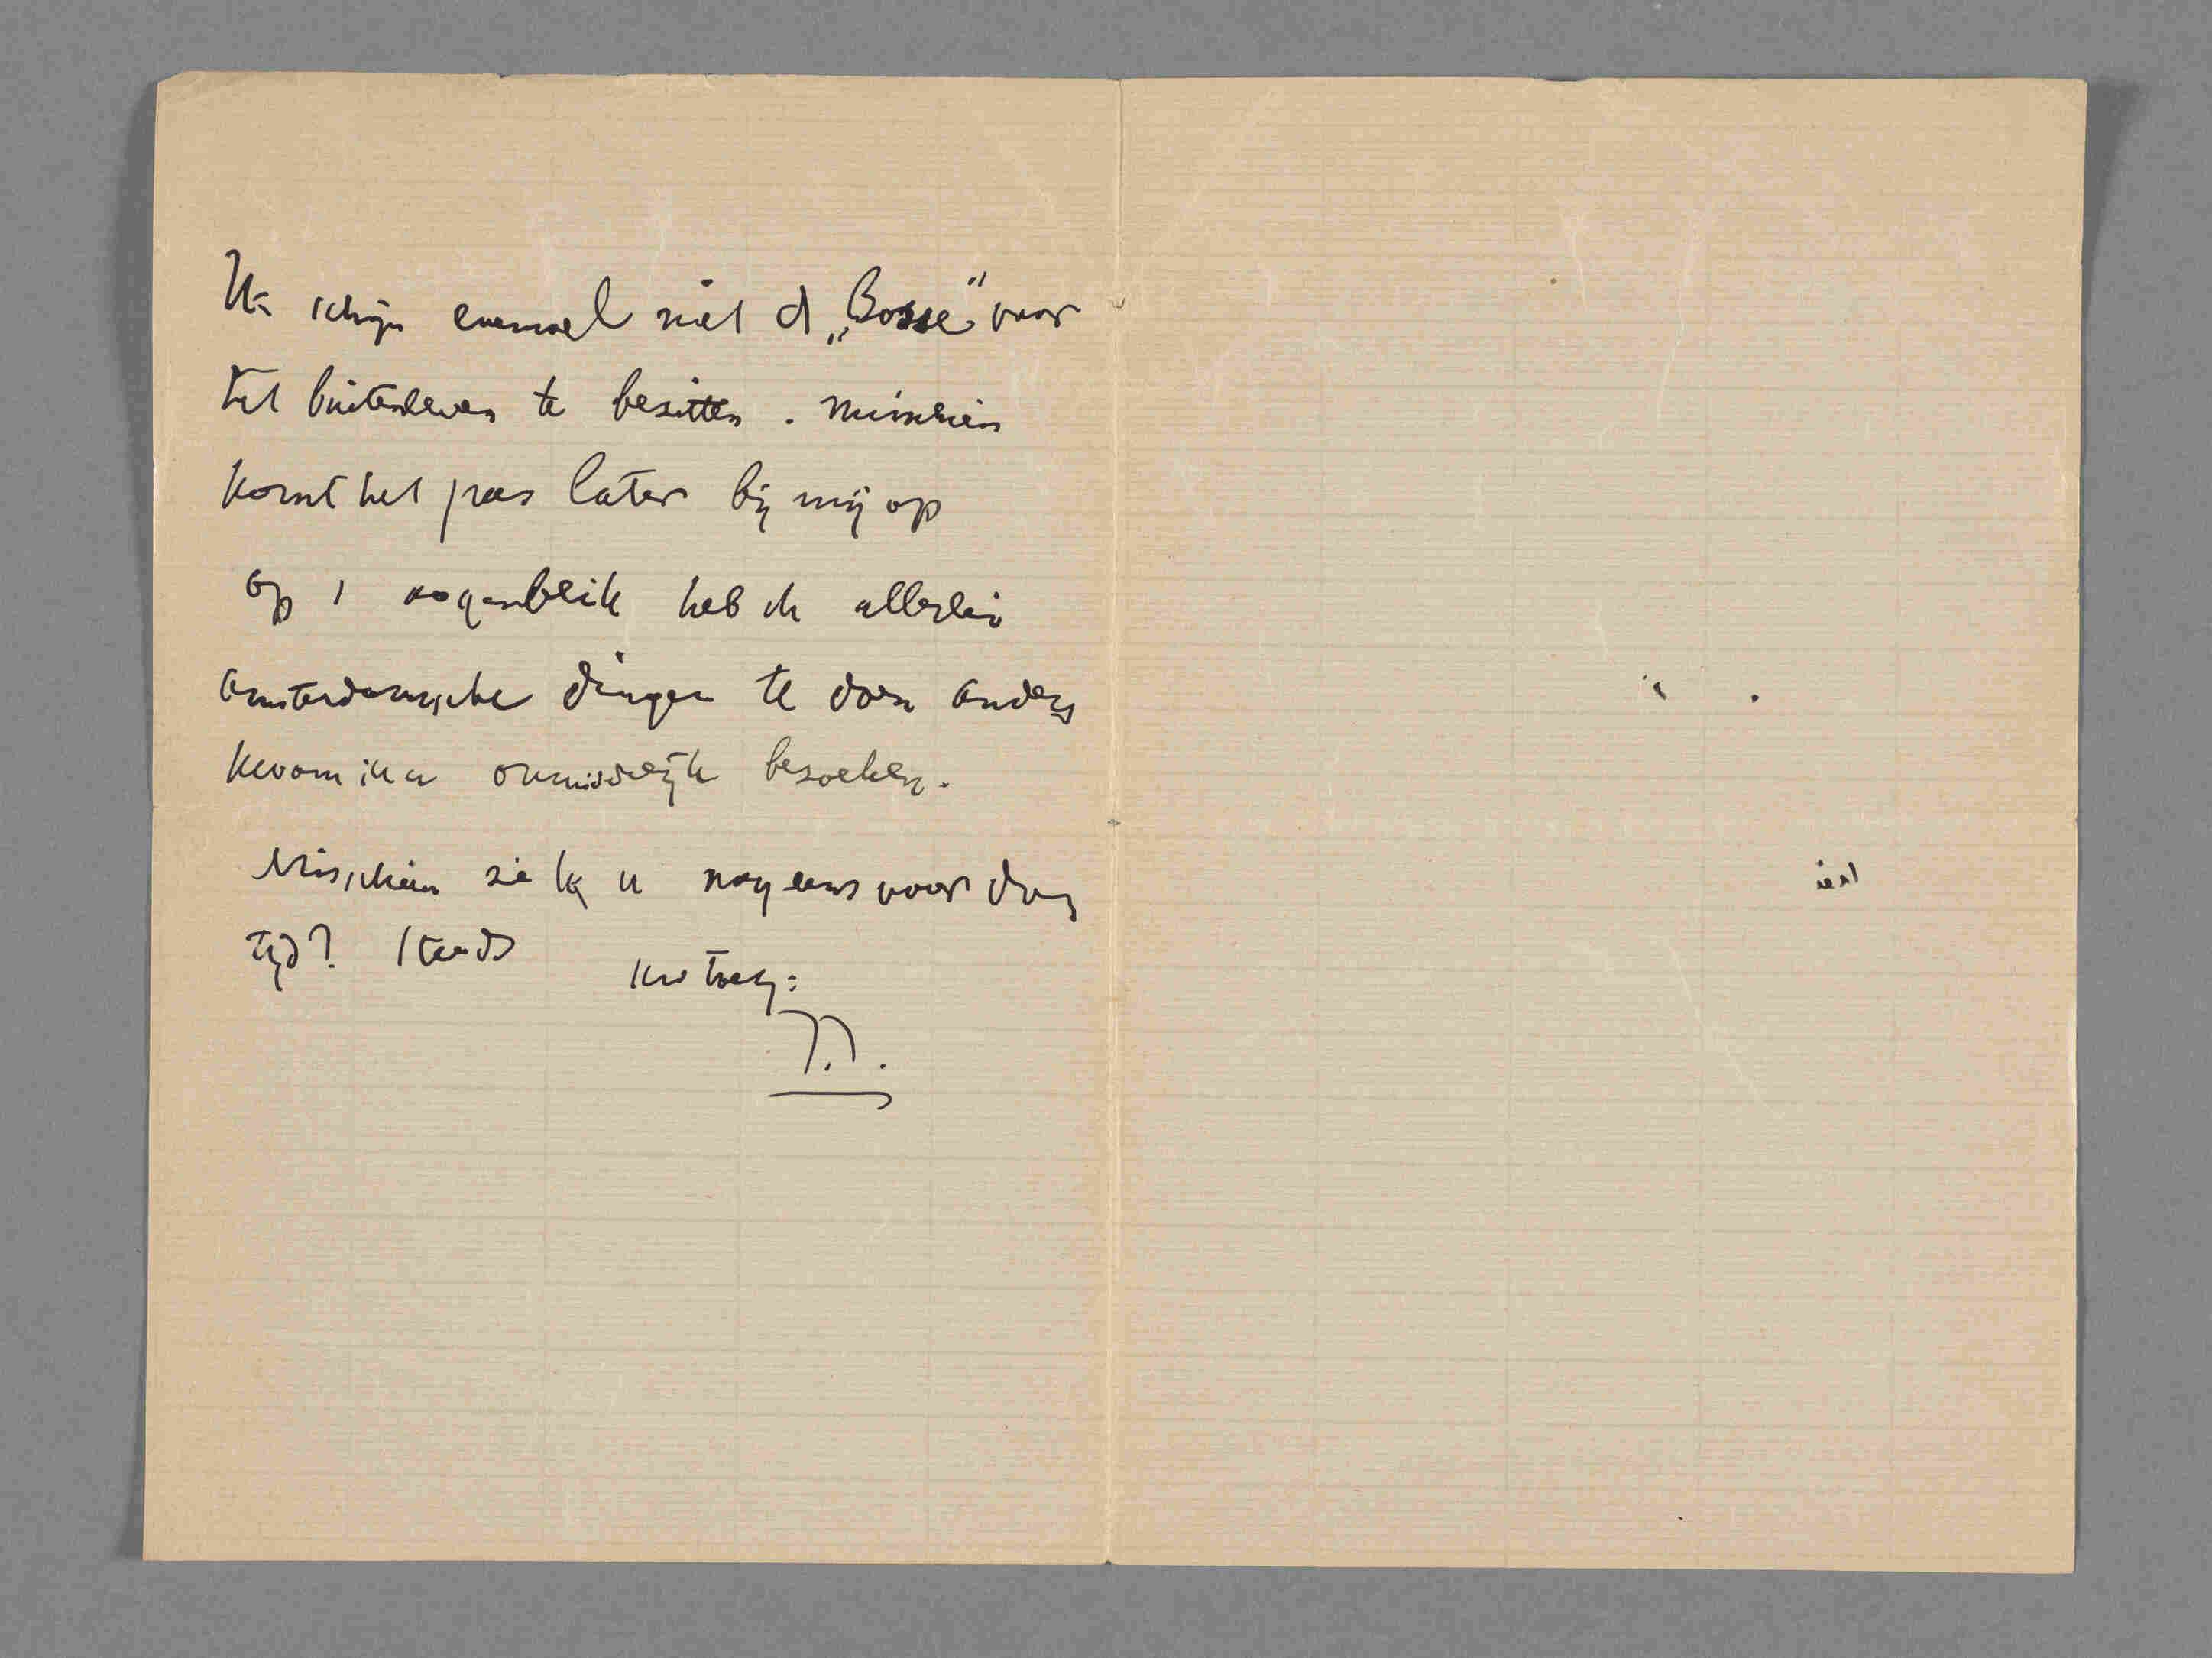 Ik schijn eenmaal niet d „Bosse” voor
het buitenleven te bezitten. Misschien
komt het pas later bij mij op
op 1 oogenblik heb ik allerlei
Amsterdamsche dingen te doen anders
kwam ik u onmiddelijk bezoeken.
Misschien zie ik u nog eens voor dien
tijd? Steeds